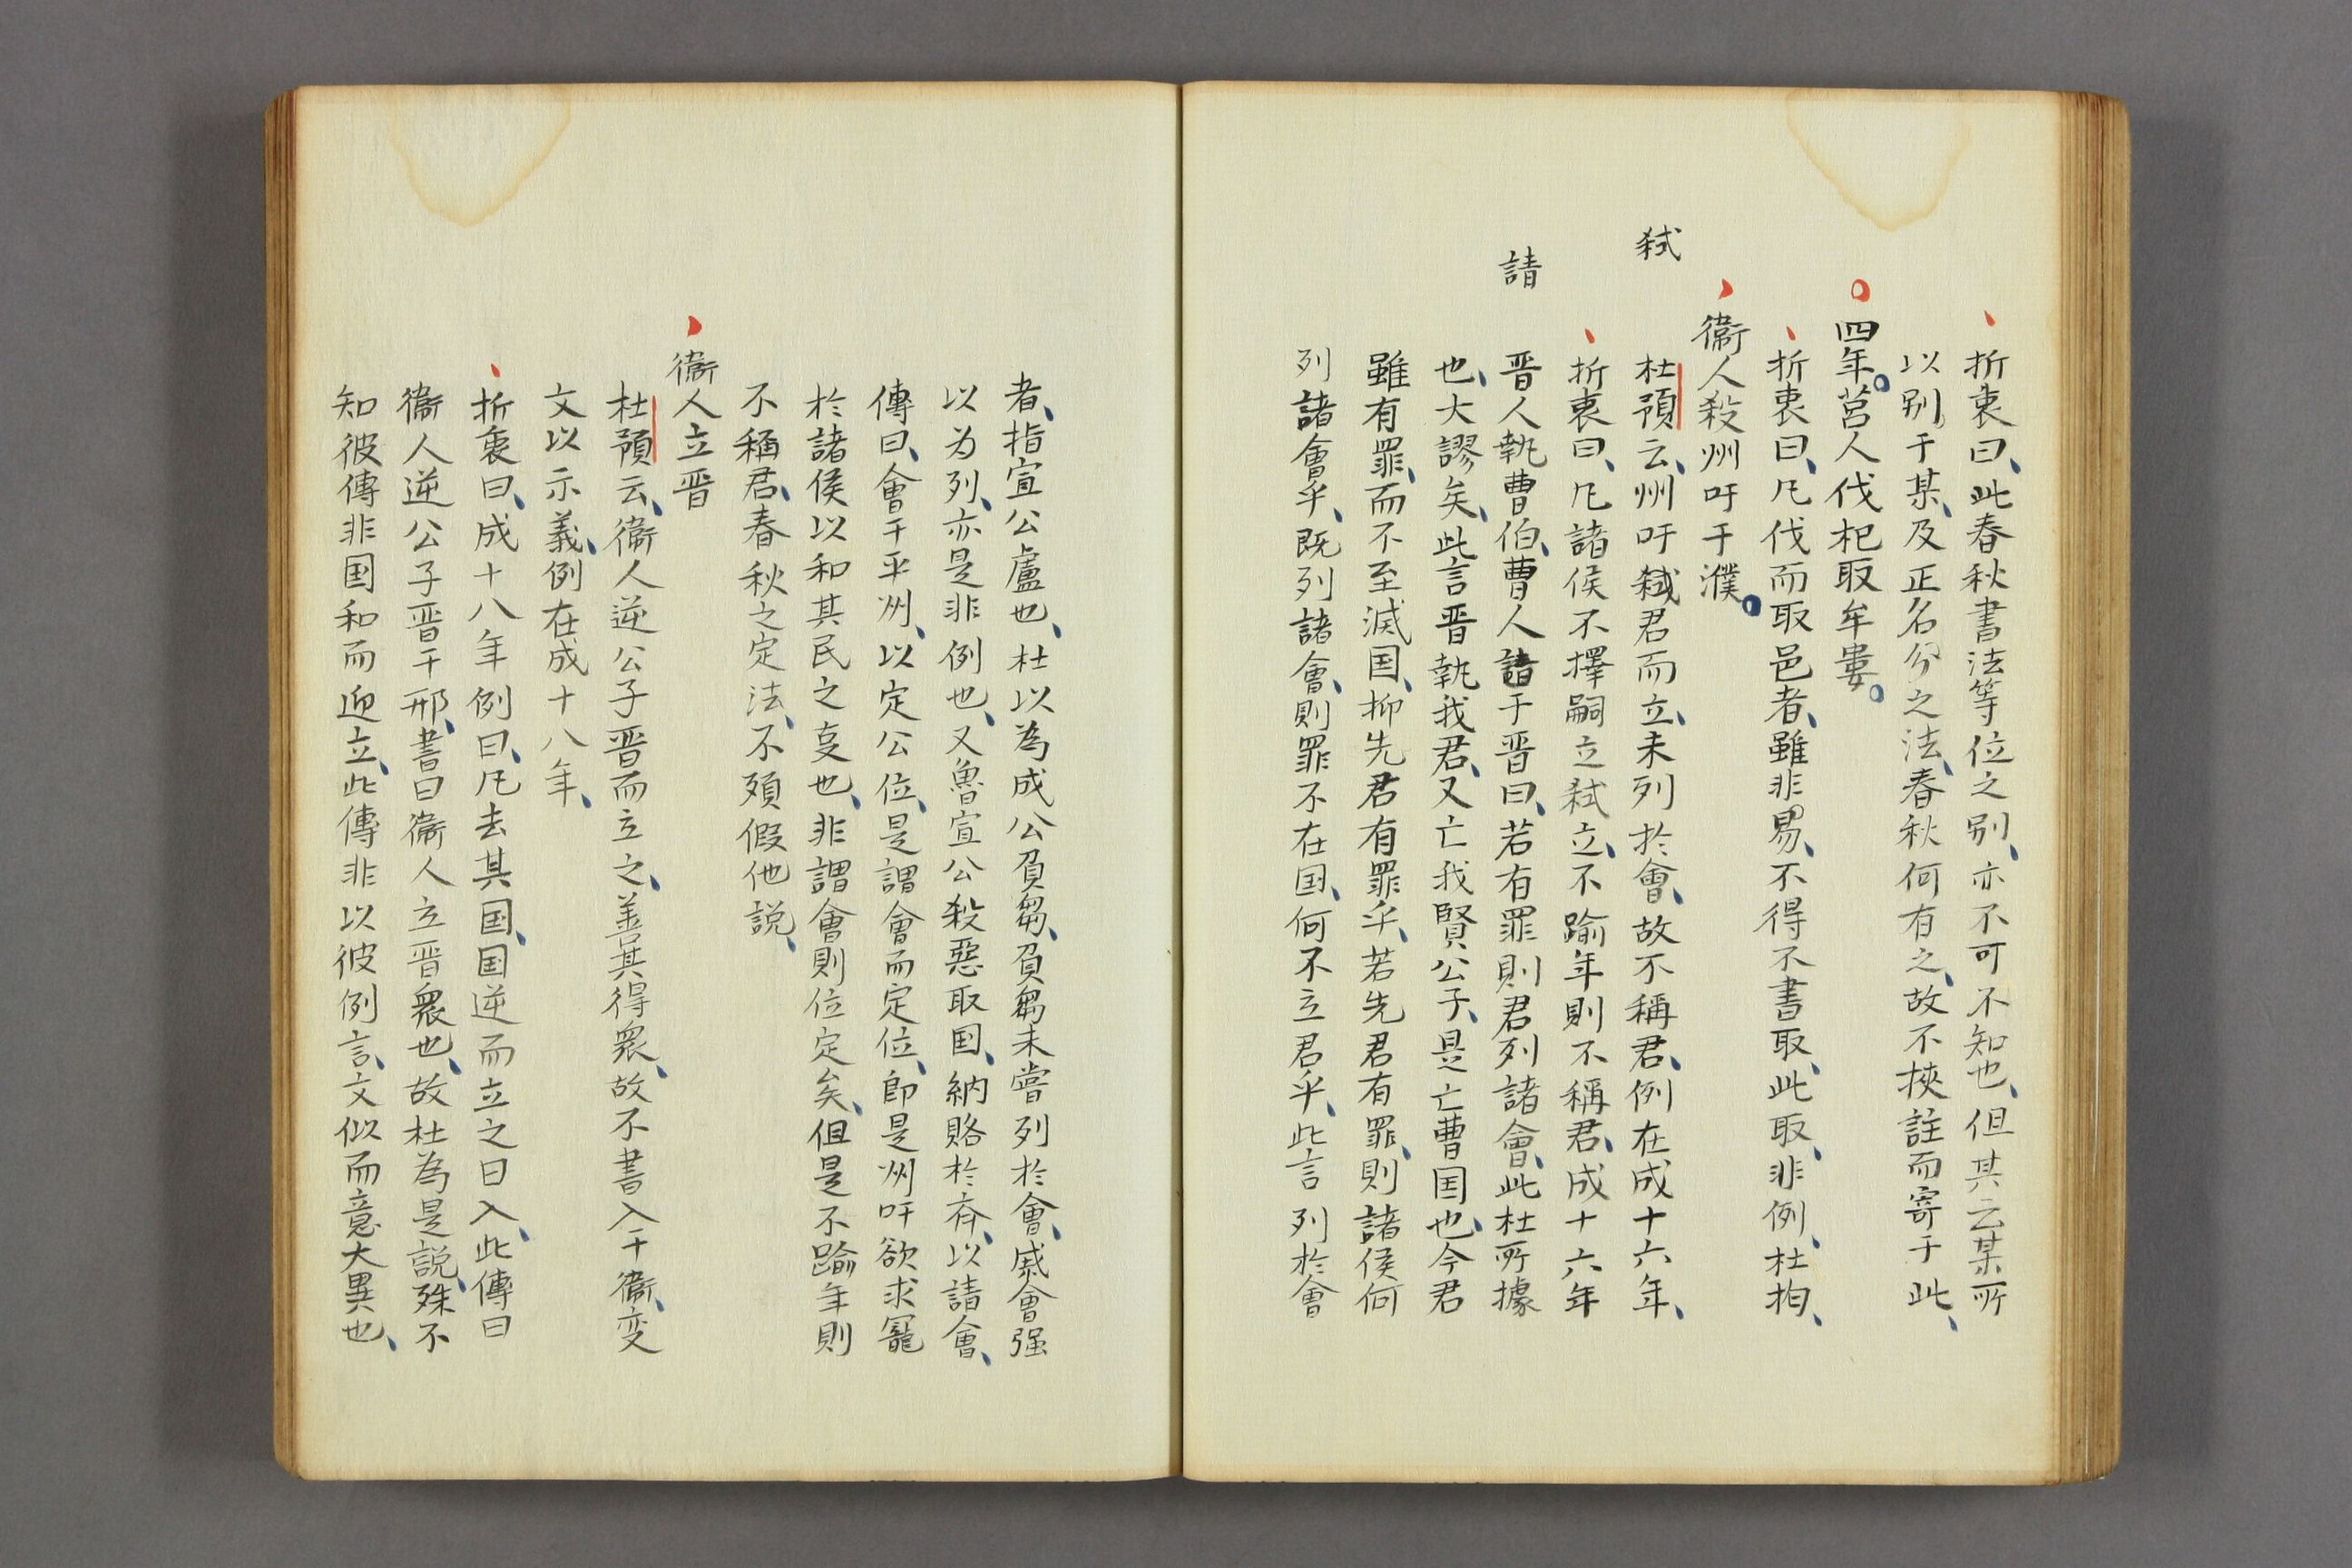 折衷曰、此春秋書法等位之别、亦不可不知也、但其云某所
以别于某、及正名分之法、春秋何有之、故不挾註而寄于此、
四年。莒人伐杞取牟婁。
折衷曰、凡伐而取邑者、雖非易、不得不書取、此取、非例、杜拘、
衞人殺州吁于濮。
弑
杜預云、州吁弑君而立、未列於會、故不稱君、例在成十六年、
折衷曰、凡諸侯不擇嗣立弑立、不踰年則不稱君、成十六年
請
晋人執曹伯、曹人請于晋曰、若有罪則君列諸會、此杜所據
也、大謬矣、此言晋執我君、又亡我賢公子、是亡曹国也、今君
雖有罪、而不至滅国、抑先君有罪乎、若先君有罪、則諸侯何
列諸會乎、既列諸會、則罪不在国、何不立君乎、此言列於會
者、指宣公盧也、杜以為成公負芻、負芻未嘗列於會、戚會强
以为列、亦是非例也、又魯宣公殺惡取国、納賂於斉、以請會、
傳曰、會于平州、以定公位、是謂會而定位、即是州吁欲求寵
於諸侯以和其民之㕝也、非謂會則位定矣、但是不踰年則
不稱君、春秋之定法、不須假他説、
衞人立晋
杜預云、衞人逆公子晋而立之、善其得衆、故不書入于衞、変
文以示義、例在成十八年、
折衷曰、成十八年例曰、凡去其国、国逆而立之曰入、此傳曰
衞人逆公子晋于邢、書曰衞人立晋衆也、故杜為是説、殊不
知彼傳非国和而迎立、此傳非以彼例言、文似而意大異也、